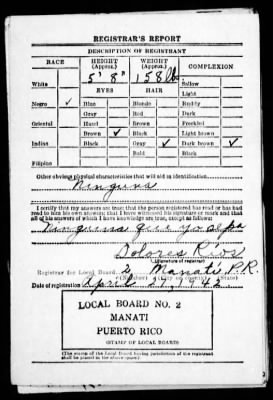 REGISTRAR'S REPORT
DESCRIPTION OF REGISTRANT
RACE HEIGHT (Approx.) WEIGHT (Approx.) COMPLEXION
5' 8" 158 lb.
White Sallow
EYES HAIR Light
Negro ✓ Blue Blonde Ruddy
Gray Red Dark
Oriental Hazel Brown Freckled
Brown ✓ Black Light brown
Indian Black Gray ✓ Dark brown ✓
Bald Black
Filipino
Other obvious physical characteristics that will aid in identification
Ninguna
I certify that my answers are true; that the person registered has read or has had
read to him his own answers; that I have witnessed his signature or mark and that
all of his answers of which I have knowledge are true, except as follows:
Ninguna que yo sepa
Dolores Rios
(Signature of registrar)
Registrar for Local Board 2 Manatí P.R.
(Number) (City or county) (State)
Date of registration April 27, 1942
LOCAL BOARD NO. 2
MANATI
PUERTO RICO
(STAMP OF LOCAL BOARD)
(The stamp of the Local Board having jurisdiction of the registrant
shall be placed in the above space.)